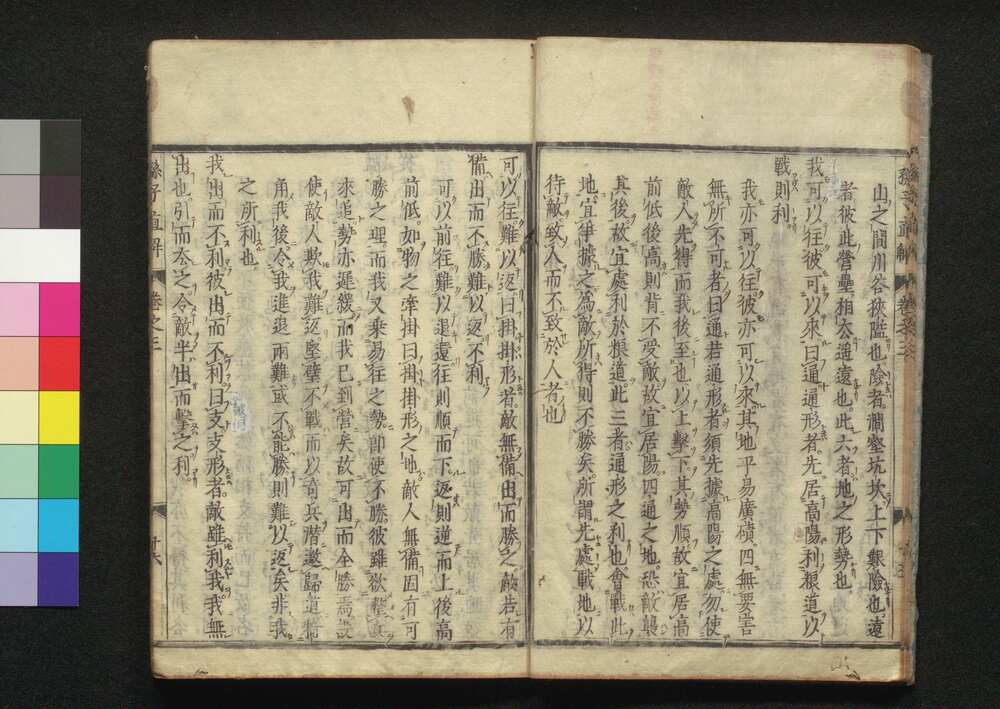 山之間川谷狹隘也險者澗壑坑坎上下艱險也遠
者彼此營壘相去遥遠也此六者地之形勢也
我可以往彼可以來曰通通形者先居高陽利粮道以
戰則利
我亦可以往彼亦可以來其地平易廣磧四無要害
無所不可者曰通若通形者須先據高陽之處勿使
敵人先得而我後至也以上擊下其勢順故宜居高
前低後高則背不受敵故宜居陽四通之地恐敵襲
其後故宜處利於粮道此三者通形之利也會戰此
地宜爭據之為敵所得則不勝矣所謂先處戰地以
待敵致人而不致於人者也
可以往難以返曰掛掛形者敵無備出而勝之敵若有
備出而不勝難以返不利
可以前往難以退還往則順而下返則逆而上後高
前低如物之牽掛曰掛掛形之地敵人無備固有可
勝之理而我又乘易往之勢即使不勝彼雖欲
來追勢亦遲緩而我已到營矣故可出而全勝焉設
使敵人欺我難返堅壁不戰而以奇兵潛邀歸道犄
角我後令我進退兩難或不能勝則難以返矣非我
之所利也
我出而不利彼出而不利曰支支形者敵雖利我我無
出也引而去之令敵半出而擊之利
孫子直解
卷之三